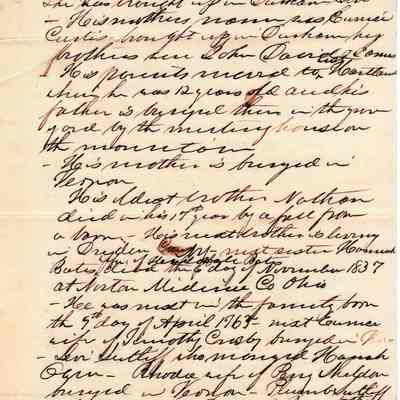 She was brought up in Durham
- His mothers name was Eunice
Curtis, brought up in Durham, her
brothers were John David & James
His parents moved to Hartland
when he was 12 years old and his
father is buryed there in the grave
yard by the meeting house on
the mountain
- His mother is buryed in
Vernon
His oldest brother Nathan
died in his 17 year by a fall from
a barn - His next brother is living
in Dryden next sister Hannah
Bates, died the 6 day of November 1837
at Norton Medina Co Ohio
- He was next in the family, born
the 9th day of April 1763 - next Eunice
wife of Timothy Crosby buryed in
- Levi Sutliff who married Hannah
- Rhoda wife of Sheldon
buryed in Vernon - Sutliff